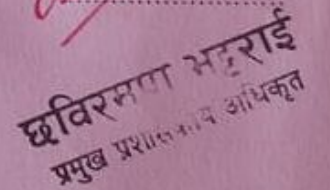 छविरमण भट्टराई
प्रमुख प्रशासकीय अधिकृत